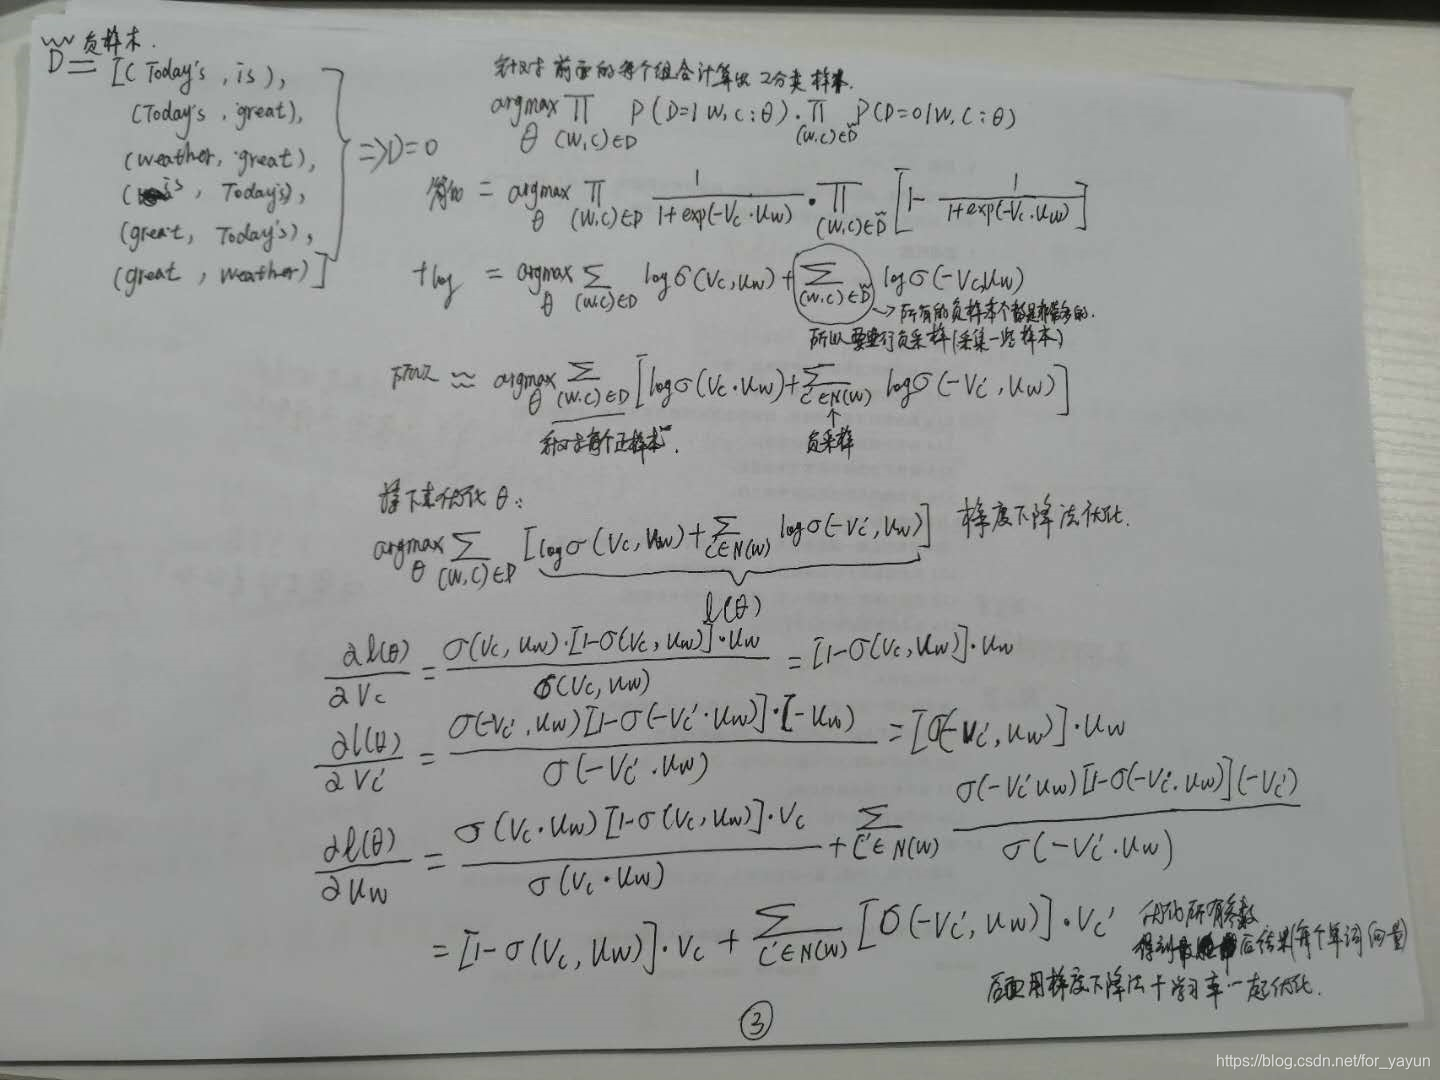 负样本.
D̃ = [(Today's, is),
(Today's, great),
(weather, great),
(is, Today's),
(great, Today's),
(great, weather)]
=> D=0
针对前面的每个组合计算出2分类样本.
argmax θ ∏ (w,c)∈D P(D=1|w,c;θ)·∏ (w,c)∈D̃ P(D=0|w,c;θ)
= argmax θ ∏ (w,c)∈D 1/(1+exp(-Vc·uw)) · ∏ (w,c)∈D̃ [1 - 1/(1+exp(-Vc·uw))]
+log = argmax θ Σ (w,c)∈D logσ(Vc,uw) + Σ (w,c)∈D̃ logσ(-Vc,uw)
→所有的负样本个数是非常多的.
所以要进行负采样(采集一些样本)
所以 ≈ argmax θ Σ (w,c)∈D [logσ(Vc·uw) + Σ c'∈N(w) logσ(-Vc',uw)]
针对每个正样本.
↑
负采样
接下来优化θ:
argmax θ Σ (w,c)∈D [logσ(Vc,uw) + Σ c'∈N(w) logσ(-Vc',uw)] 梯度下降法优化.
l(θ)
∂l(θ)/∂Vc = σ(Vc,uw)·[1-σ(Vc,uw)]·uw / σ(Vc,uw) = [1-σ(Vc,uw)]·uw
∂l(θ)/∂Vc' = σ(-Vc',uw)[1-σ(-Vc'·uw)]·[-uw) / σ(-Vc'·uw) = [σ(-Vc',uw)]·uw
∂l(θ)/∂uw = σ(Vc·uw)[1-σ(Vc,uw)]·Vc / σ(Vc·uw) + Σ c'∈N(w) σ(-Vc'uw)[1-σ(-Vc'·uw)](-Vc') / σ(-Vc'·uw)
= [1-σ(Vc,uw)]·Vc + Σ c'∈N(w) [σ(-Vc',uw)]·Vc'
优化所有参数
得到最后结果(每个单词向量)
后面用梯度下降法+学习率一起优化.
③
https://blog.csdn.net/for_yayun